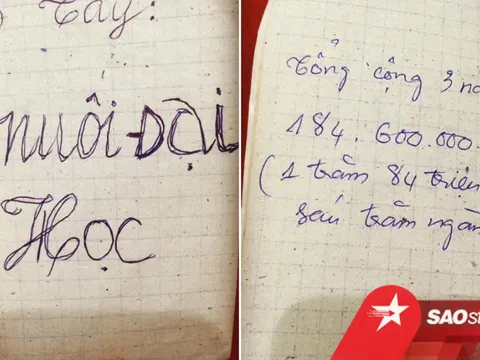 Tay:
nuôi ĐẠi
Học
Tổng cộng 3
184.600.000.
(1 trăm 84 triệu
sáu trăm ngàn
SAOst